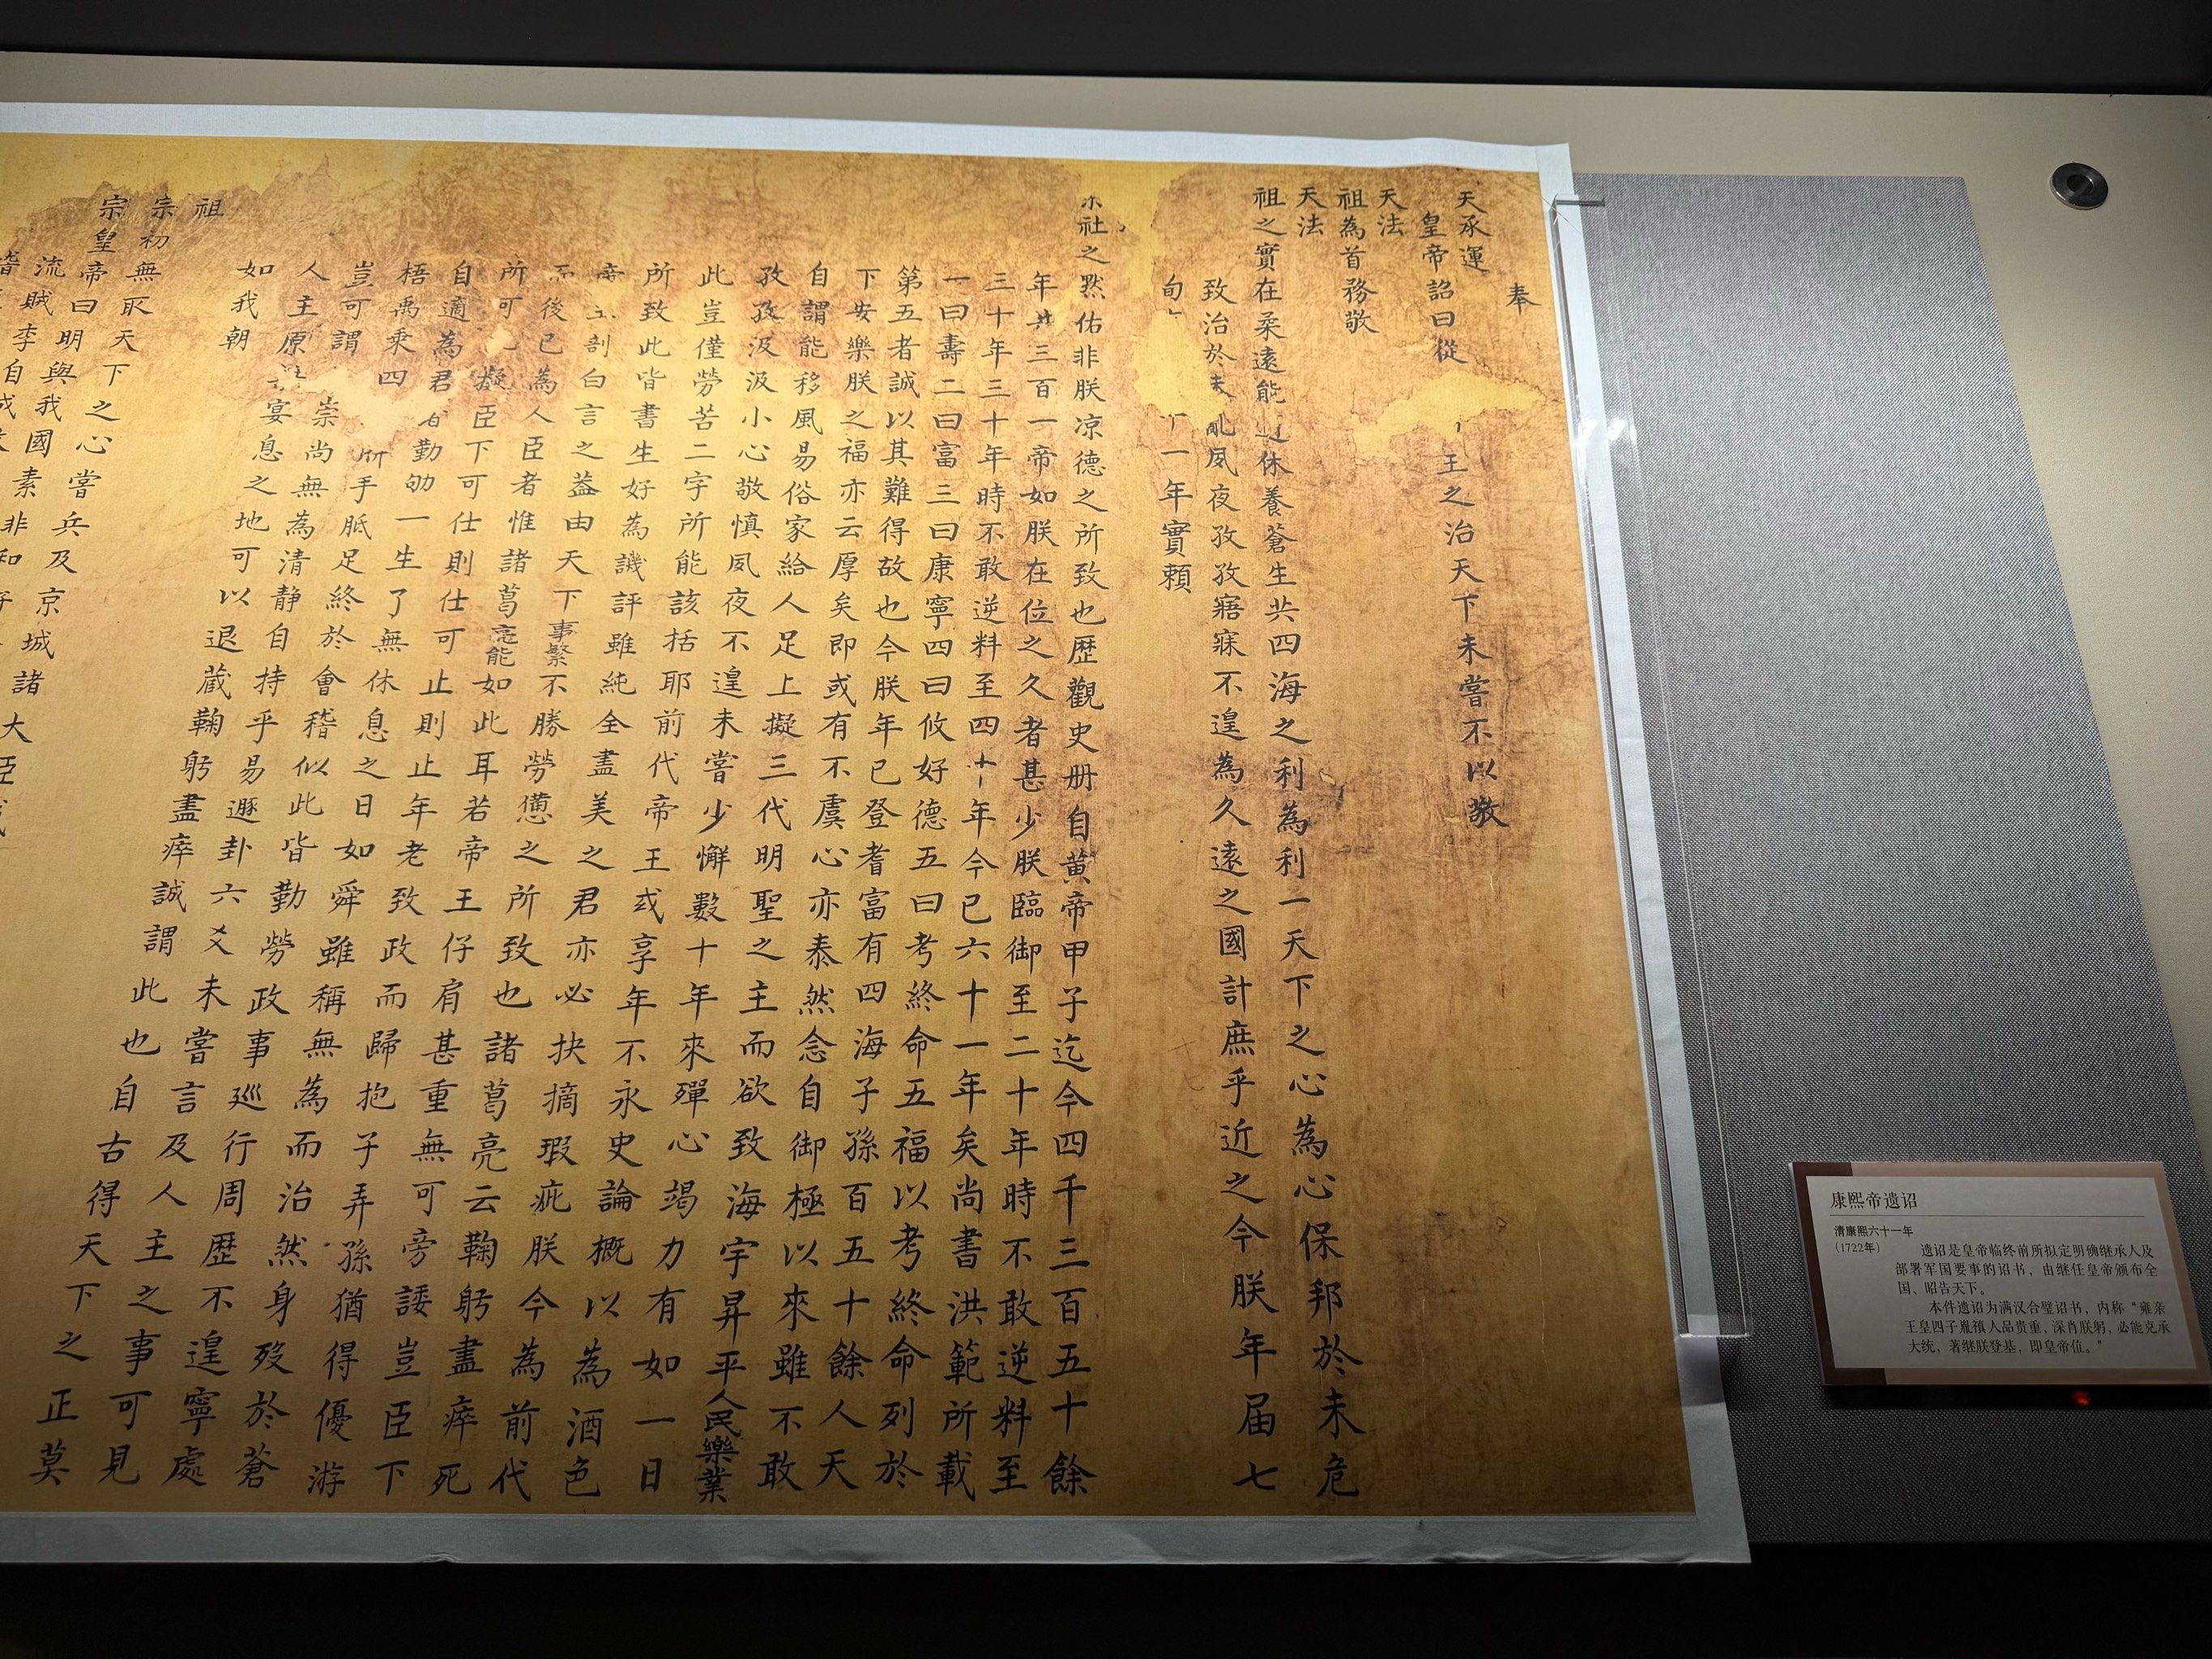 奉
天承運
皇帝詔曰從王之治天下未嘗不以敬
天法
祖為首務敬
天法
祖之實在柔遠能休養蒼生共四海之利為利一天下之心為心保邦於未危
致治於未亂夙夜孜孜寤寐不遑為久遠之國計庶乎近之今朕年屆七
旬一年實賴
社之默佑非朕凉德之所致也歷觀史册自黃帝甲子迄今四千三百五十餘
年共三百一帝如朕在位之久者甚少朕臨御至二十年時不敢逆料至
三十年三十年時不敢逆料至四十年今已六十一年矣尚書洪範所載
一曰壽二曰富三曰康寧四曰攸好德五曰考終命五福以考終命列於
第五者誠以其難得故也今朕年已登耆富有四海子孫百五十餘人天
下安樂朕之福亦云厚矣即或有不虞心亦泰然念自御極以來雖不敢
自謂能移風易俗家給人足上擬三代明聖之主而欲致海宇昇平人民樂業
孜孜汲汲小心敬慎夙夜不遑未嘗少懈數十年來殫心竭力有如一日
此豈僅勞苦二字所能該括耶前代帝王或享年不永史論概以為酒色
所致此皆書生好為譏評雖純全盡美之君亦必抉摘瑕疵朕今為前代
帝剖白言之益由天下事繁不勝勞憊之所致也諸葛亮云鞠躬盡瘁死
而後已為人臣者惟諸葛亮能如此耳若帝王仔肩甚重無可旁諉豈臣下
所可擬臣下可仕則仕可止則止年老致政而歸抱子弄孫猶得優游
自適為君者勤劬一生了無休息之日如舜雖稱無為而治然身歿於蒼
梧禹乘四所手胝足終於會稽似此皆勤勞政事巡行周歷不遑寧處
豈可謂崇尚無為清靜自持乎易遯卦六爻未嘗言及人主之事可見
人主原宴息之地可以退藏鞠躬盡瘁誠謂此也自古得天下之正莫
如我朝
祖
宗初無取天下之心嘗兵及京城諸大
宗皇帝曰明與我國素非和
流賊李自成
康熙帝遗诏
清康熙六十一年
(1722年)
遗诏是皇帝临终前所拟定明确继承人及
部署军国要事的诏书，由继任皇帝颁布全
国、昭告天下。
本件遗诏为满汉合璧诏书，内称“雍亲
王皇四子胤禛人品贵重，深肖朕躬，必能克承
大统，著继朕登基，即皇帝位。”